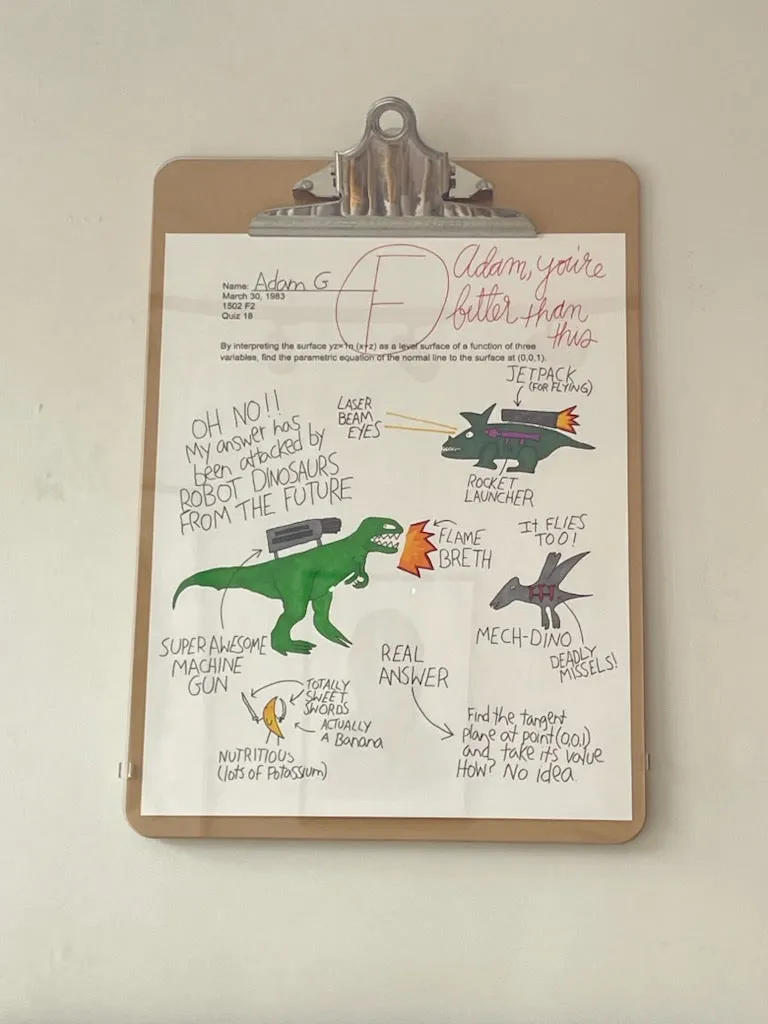 Name: Adam G
March 30, 1983
1502 F2
Quiz 18
F
Adam, you're
better than
this
By interpreting the surface yz=ln (x+z) as a level surface of a function of three
variables, find the parametric equation of the normal line to the surface at (0,0,1).
OH NO!!
My answer has
been attacked by
ROBOT DINOSAURS
FROM THE FUTURE
LASER
BEAM
EYES
JETPACK
(FOR FLYING)
ROCKET
LAUNCHER
FLAME
BRETH
It FLIES
TOO!
MECH-DINO
DEADLY
MISSELS!
SUPER AWESOME
MACHINE
GUN
TOTALLY
SWEET
SWORDS
ACTUALLY
A Banana
NUTRITIOUS
(lots of Potassium)
REAL
ANSWER
Find the tangent
plane at point (0,0,1)
and take its value
How? No idea.